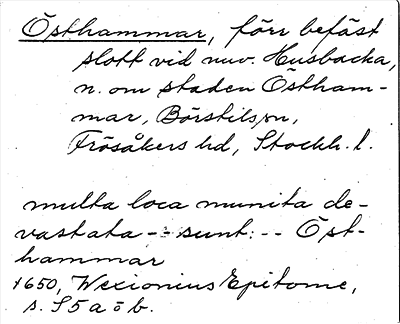 Östhammar, förr befäst
slott vid nuv. Husbacka,
n. om staden Östham-
mar, Börstils sn,
Frösåkers hd, Stockh. l.
multa loca munita de-
vastata -:- sunt: -- Öst-
hammar
1650, Wexionius Epitome,
s. S 5 a o b.